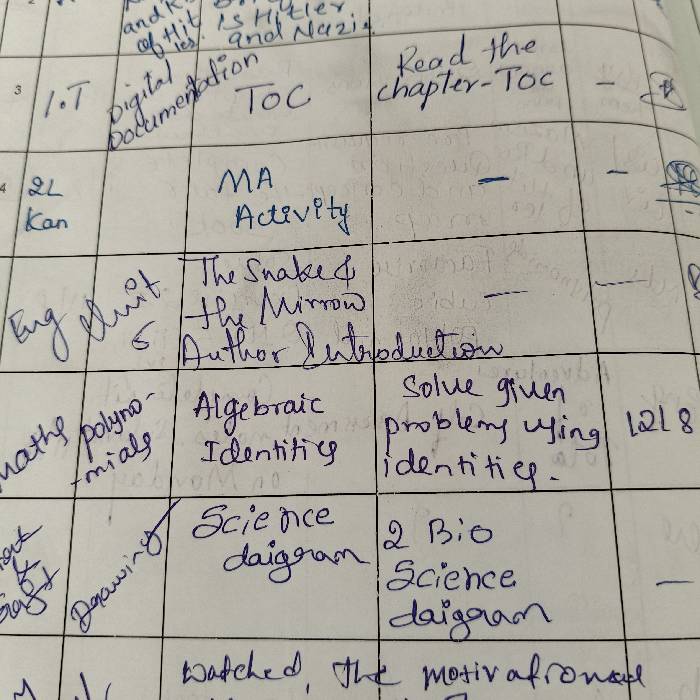 and
of Hit is Hitler
and Nazi
3
I.T
Digital
Documentation
TOC
Read the
chapter-TOC
-
4
2L
Kan
MA
Activity
-
-
Eng
Unit
6
The Snake &
the Mirror
Author Introduction
-
-
Maths
polyno-
-mials
Algebraic
Identities
Solve given
problems using
identities.
1218
&
Drawing
Science
daigram
2 Bio
Science
daigram
-
watched, the motivational